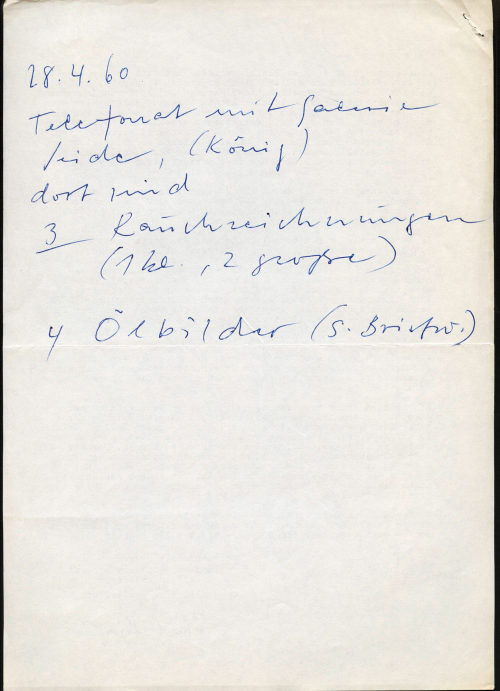 28.4.60
Telefonat mit Galerie
Seide, (König)
dort sind
3 Rauchzeichnungen
(1 kl., 2 große)
4 Ölbilder (s. Briefw.)